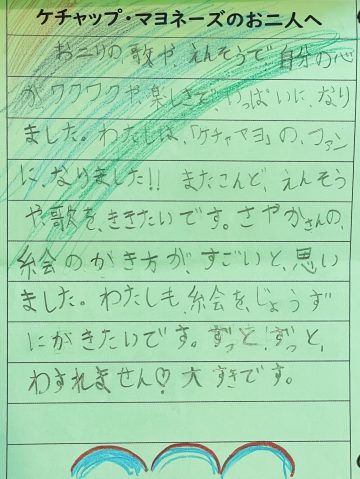 ケチャップ・マヨネーズのお二人へ
お二りの、歌や、えんそうで、自分の心
が、ワクワクや、楽しさで、いっぱいに、なり
ました。わたしは、「ケチャマヨ」の、ファン
に、なりました!! またこんど、えんそう
や歌を、ききたいです。さやかさんの、
絵のかき方が、すごいと、思い
ました。わたしも、絵を、じょうず
にがきたいです。ずっと、ずっと、
わすれません♡大すきです。